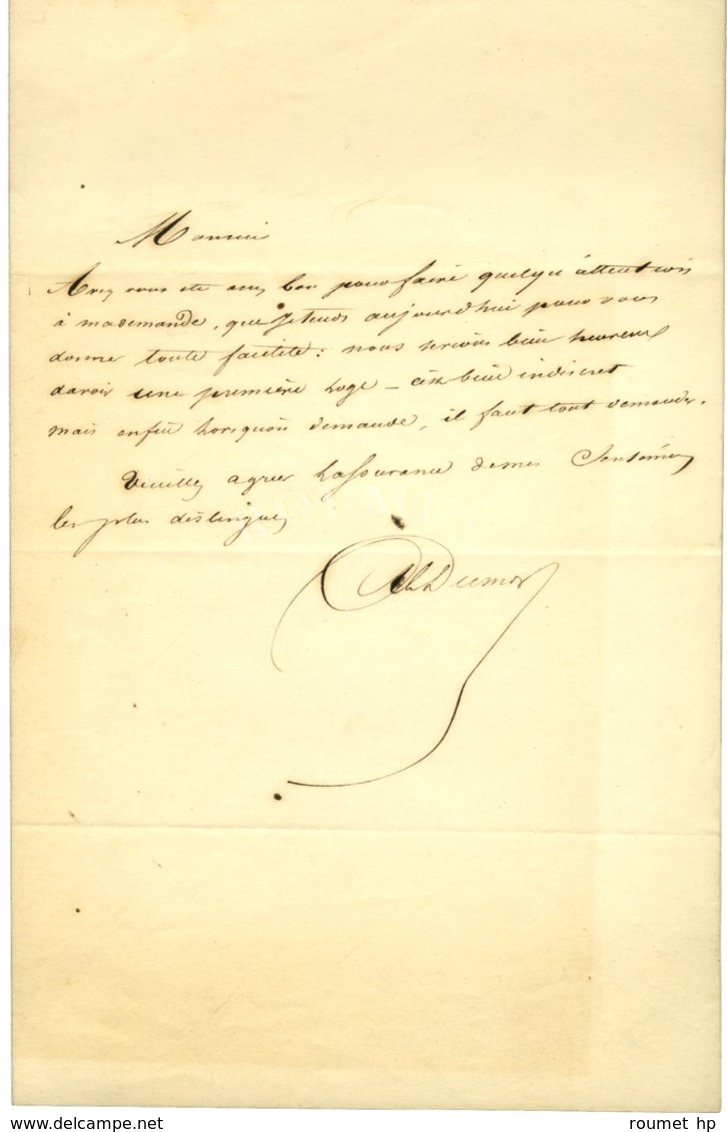 Monsieur
Avez vous été assez bon pour faire quelqu'attention
à ma demande, que je tends aujourd'hui pour vous
donner toute facilité : nous serions bien heureux
davoir une première loge _ c'est bien indiscret
mais enfin lorsquon demande, il faut tout demander.
Veuillez agréer lassurance de mes Sentimens
les plus distingués
Alx Dumas
© roumet hp